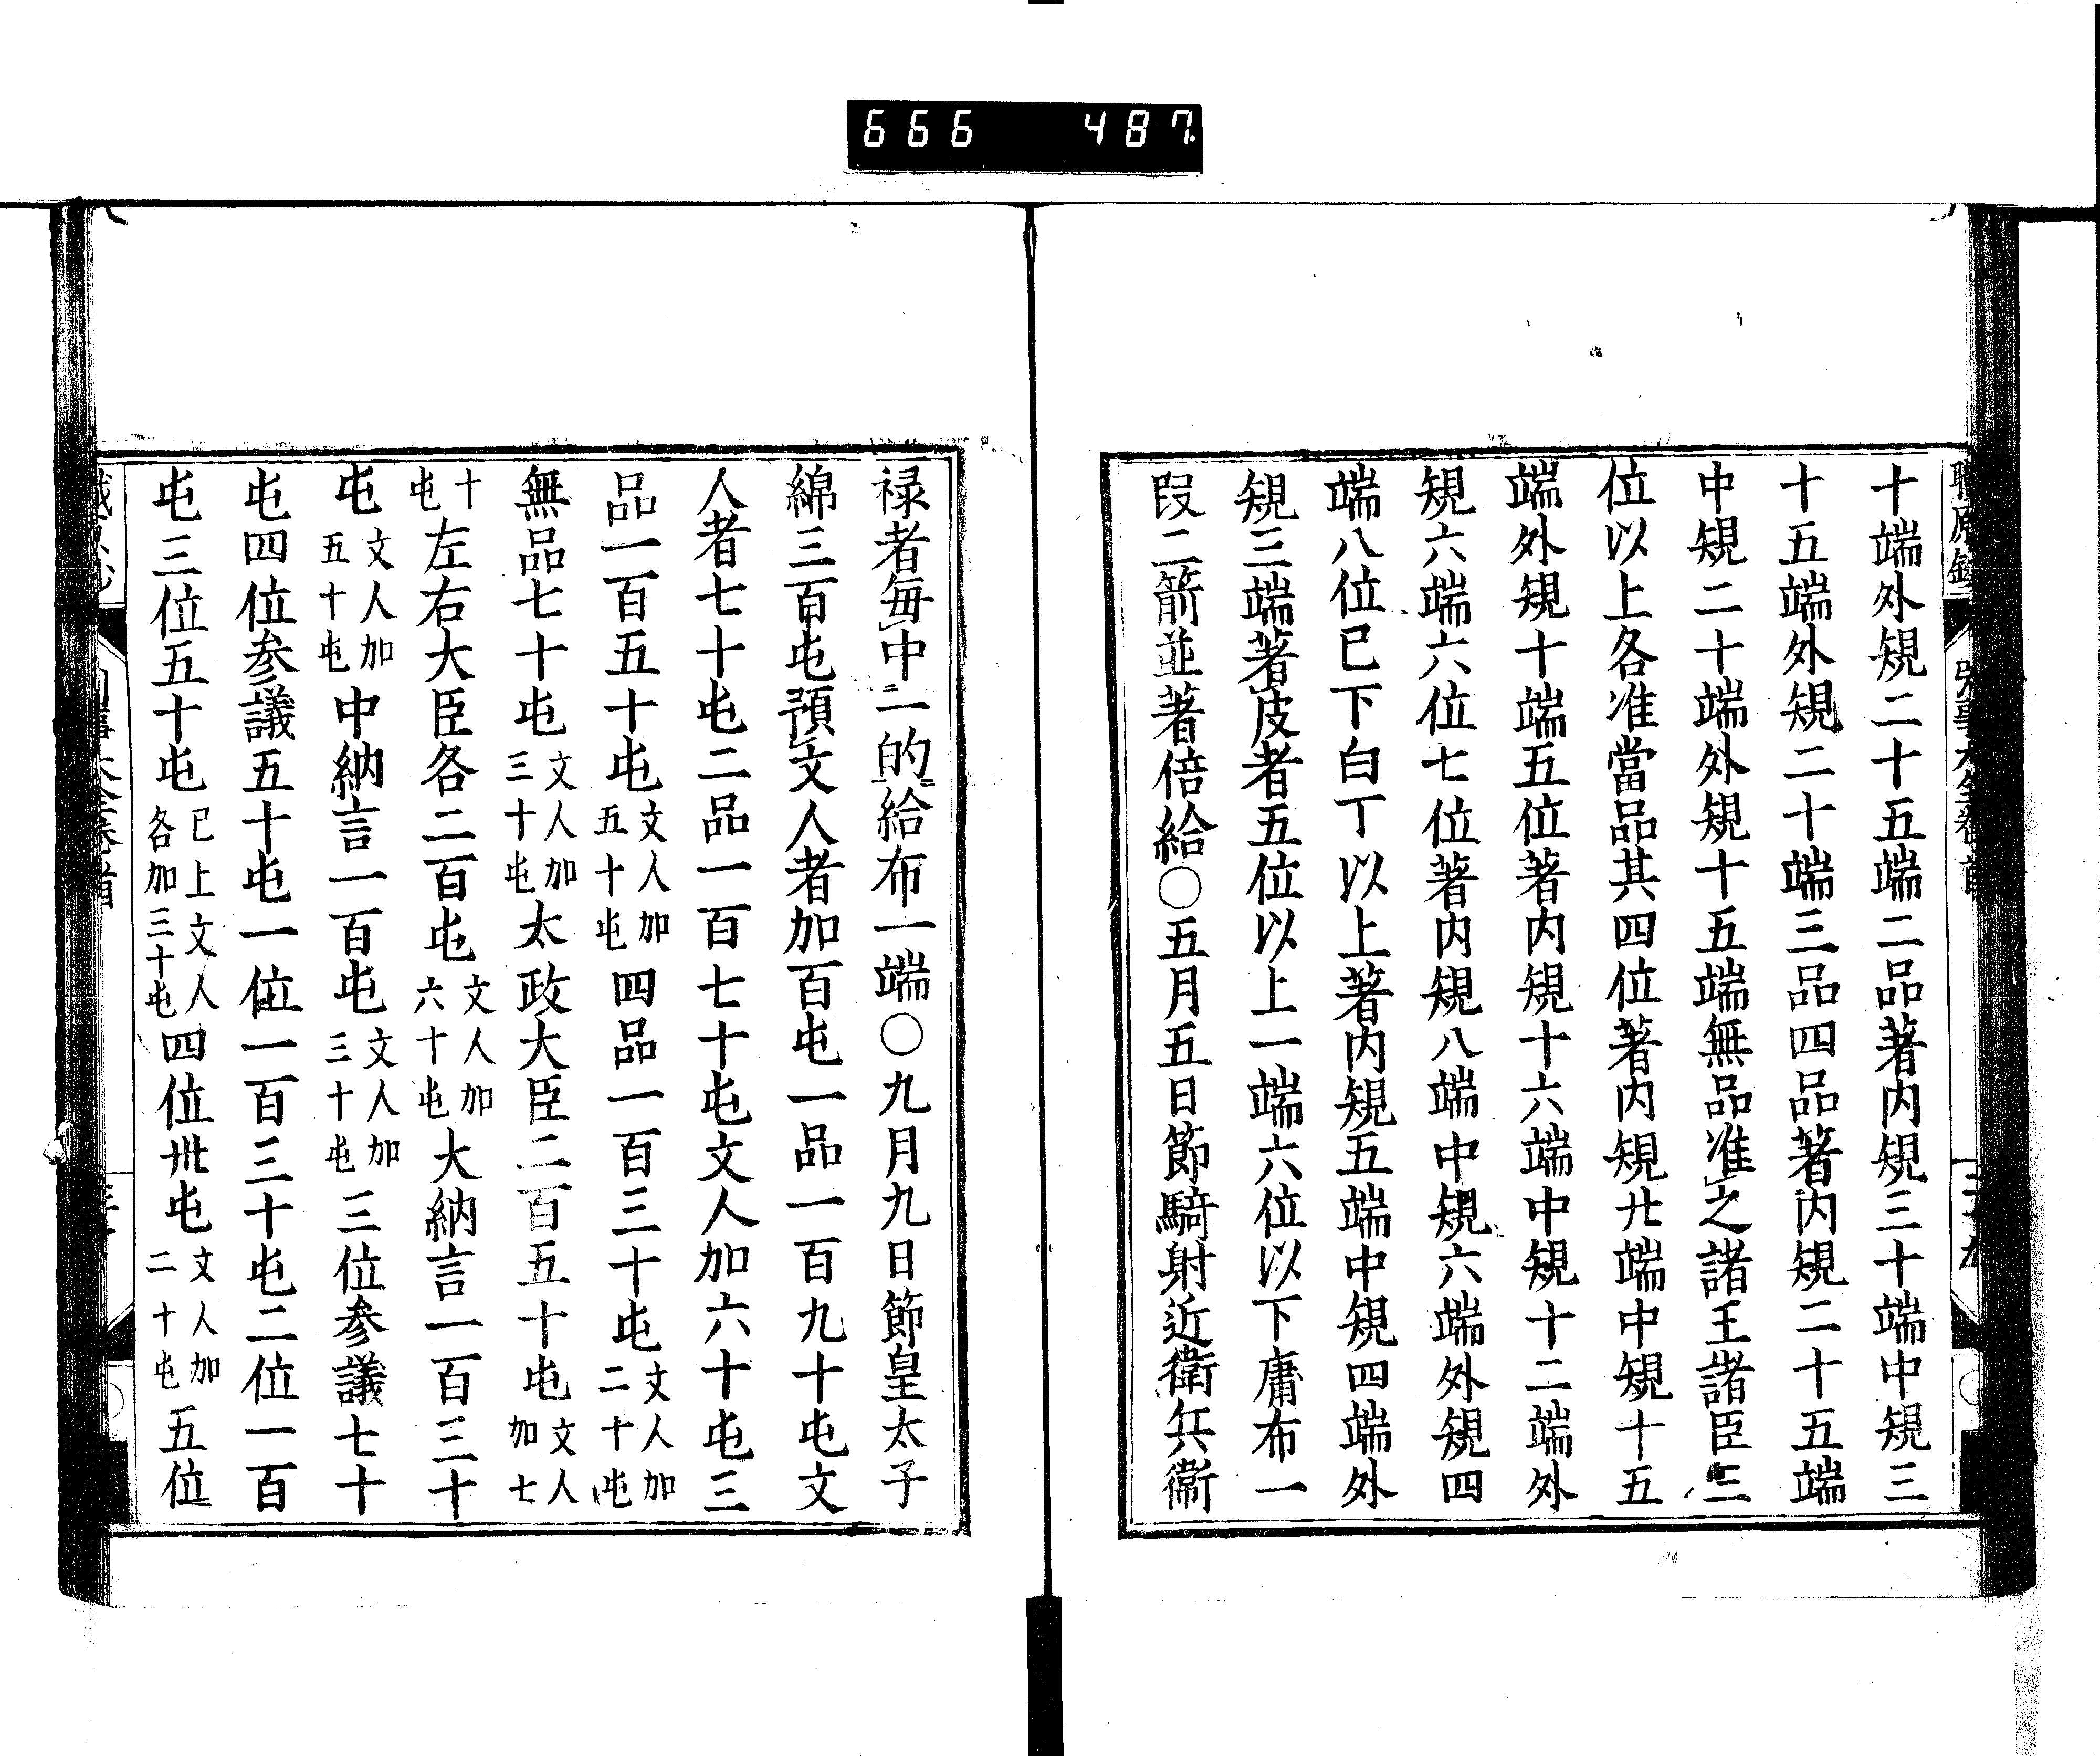 666 487
十端外䂓二十五端二品著内䂓三十端中䂓三
十五端外䂓二十端三品四品著内䂓二十五端
中䂓二十端外䂓十五端無品准之諸王諸臣三
位以上各准當品其四位著内䂓廿端中䂓十五
端外䂓十端五位著内䂓十六端中䂓十二端外
䂓六端六位七位著内䂓八端中䂓六端外䂓四
端八位已下白丁以上著内䂓五端中䂓四端外
䂓三端著皮者五位以上一端六位以下庸布一
段二箭並著倍給〇五月五日節騎射近衛兵衛
禄者毎中二的給布一端〇九月九日節皇太子
綿三百屯預文人者加百屯一品一百九十屯文
人者七十屯二品一百七十屯文人加六十屯三
品一百五十屯文人加五十屯四品一百三十屯文人加二十屯
無品七十屯文人加三十屯太政大臣二百五十屯文人加七
十屯左右大臣各二百屯文人加六十屯大納言一百三十
屯文人加五十屯中納言一百屯文人加三十屯三位参議七十
屯四位参議五十屯一位一百三十屯二位一百
屯三位五十屯已上文人各加三十屯四位卅屯文人加二十屯五位